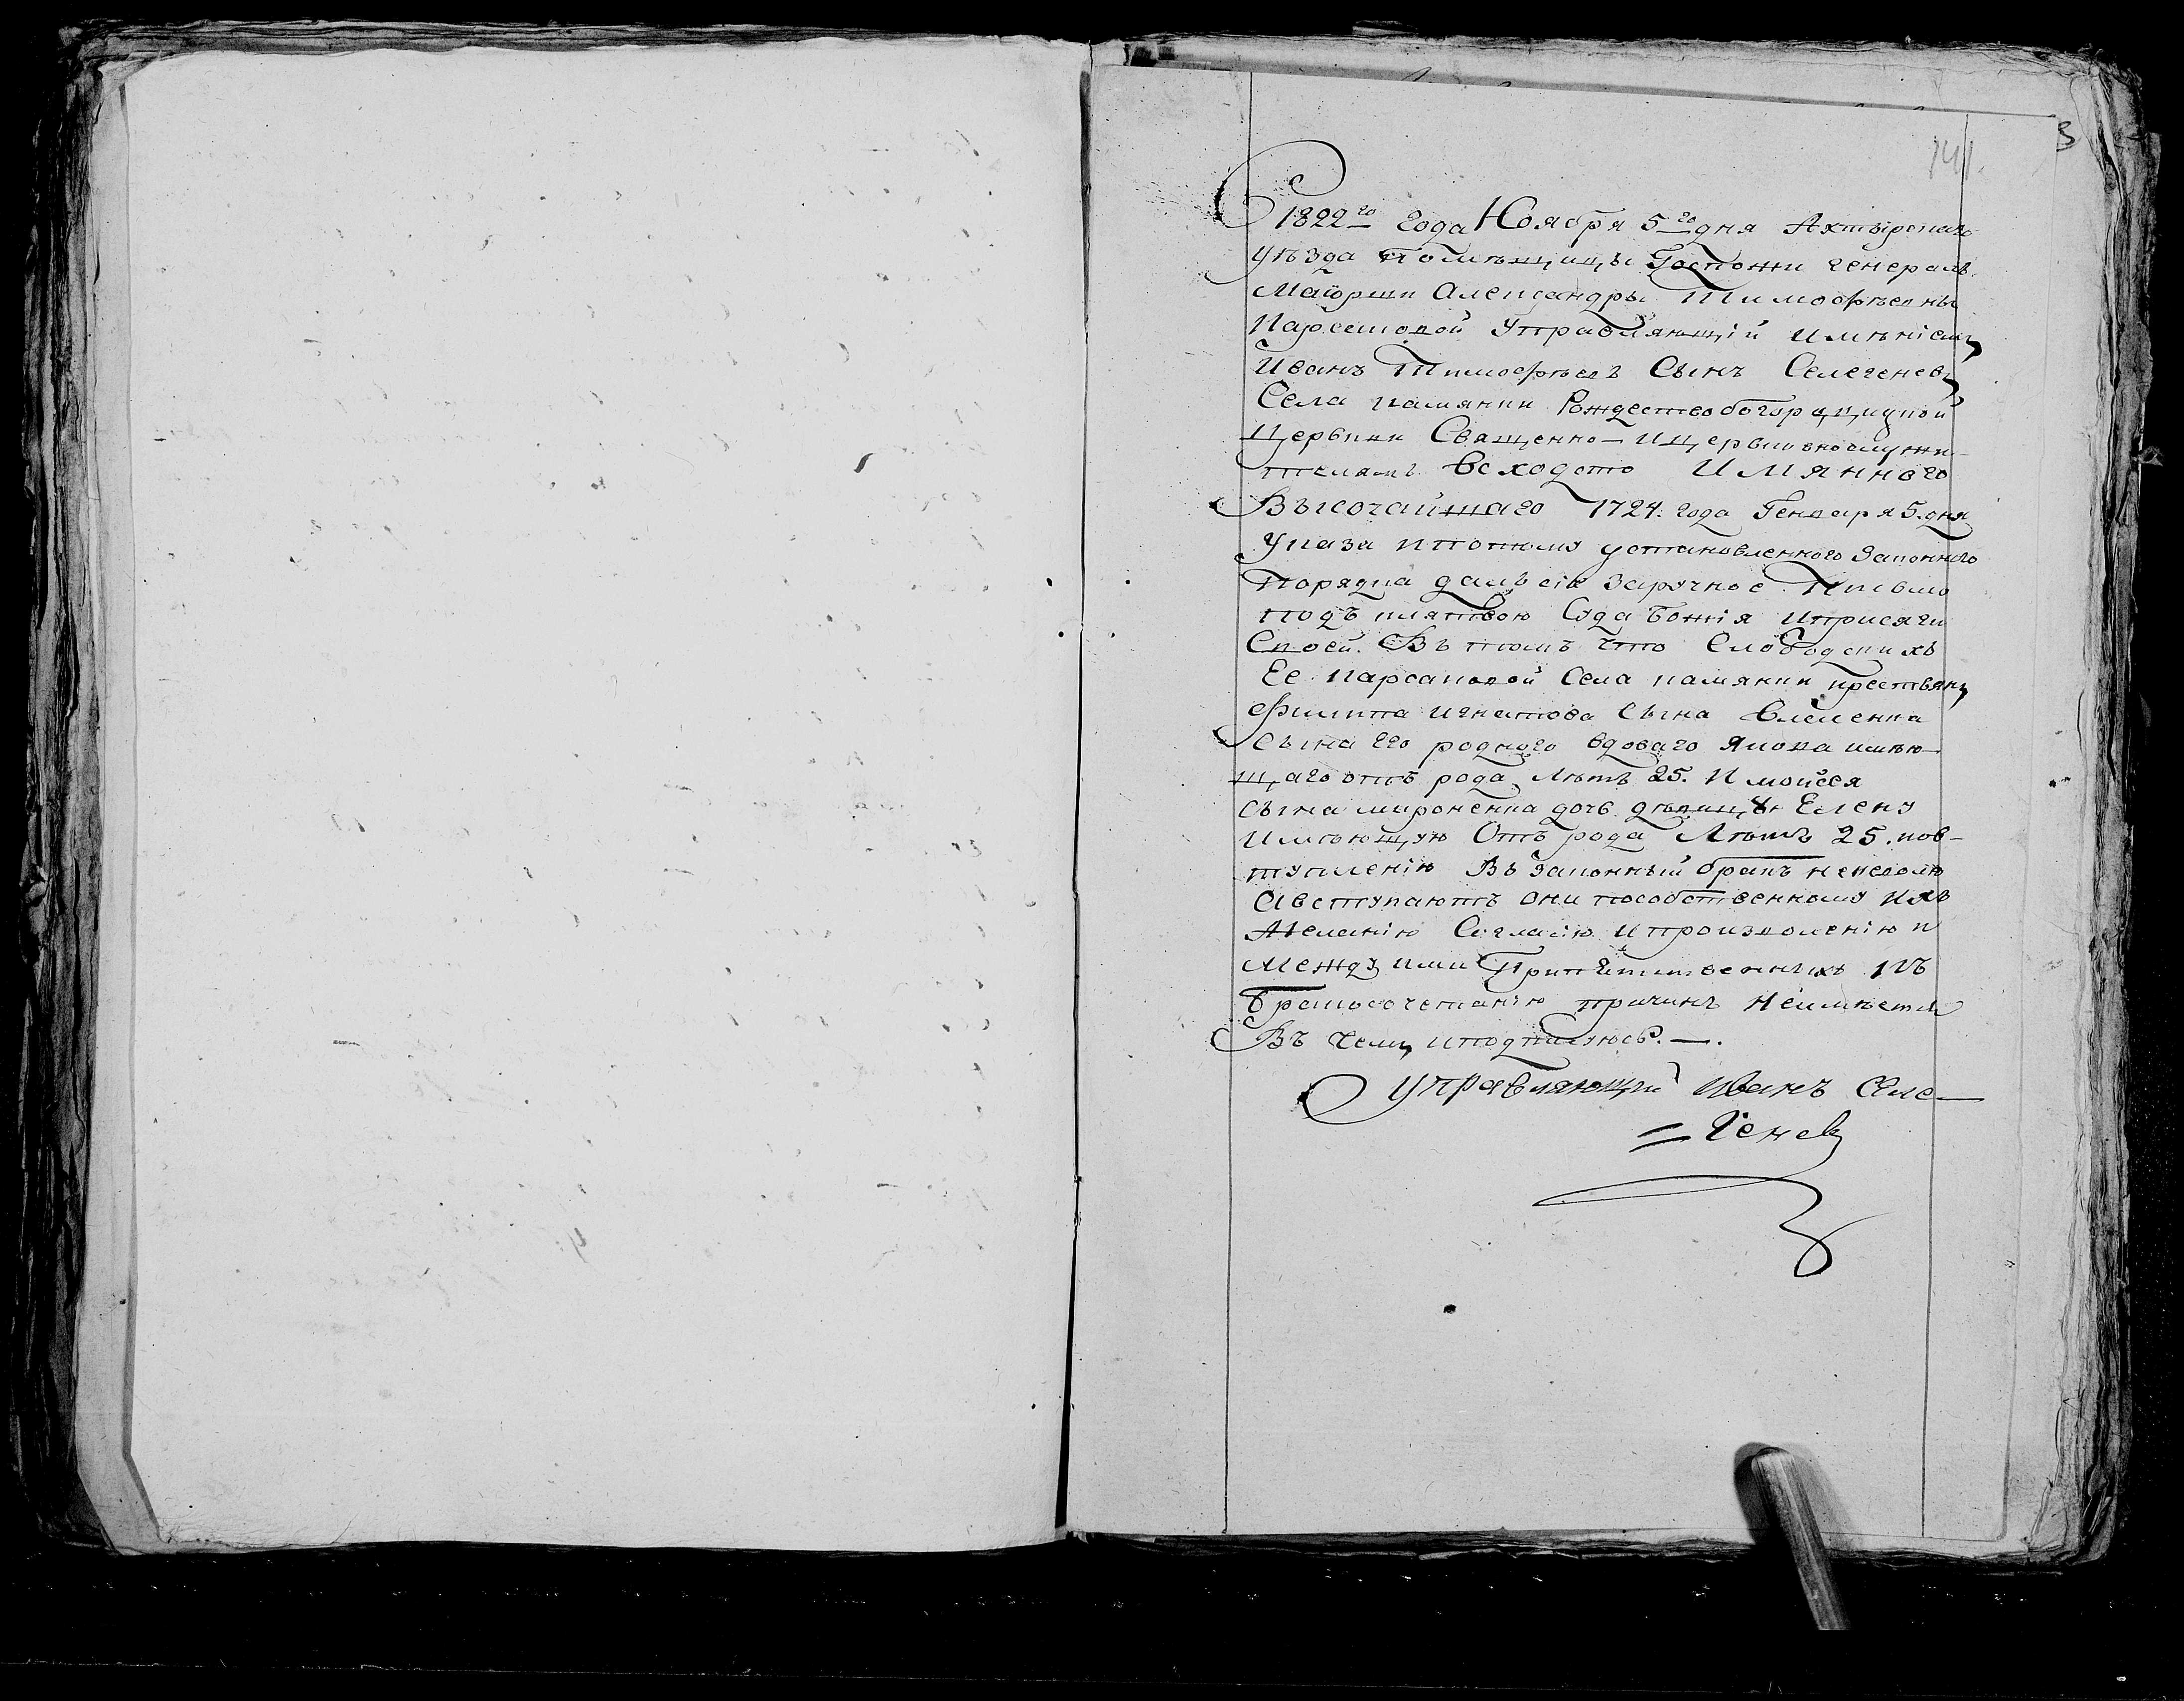 141.
1822го года Ноября 5го дня Ахтырскаго
уѣзда помѣщицы Госпожи генералъ
Маіорши Александры Тимофѣевны
Управляющій имѣніемъ
Иванъ Тимофѣевъ Сынъ Селегеневъ
Села камянки Рождествобогородицкой
Церквии Священно– и церковнослужи-
телямъ Имяннаго
Высочайшаго 1724: года Генваря 5. дня
Указа ипотому установленного Законного
Порядка далъ сіе заручное Письмо
подъ клятвою Суда Божія иприсяги
Своей. Въ томъ что Слободскихъ
Ее карсаковой Села камянки крестьянъ
Филипа игнатова сына
сына его родного вдоваго якова имѣю-
щаго отъ рода лѣтъ 25. И мойсея
сына мироненка дочь дѣвицы Елену
имѣющую Отъ рода Лѣтъ 25. ков-
туплению Въ Законный бракъ неневолю
Авступаютъ они пособственному ихъ
Желанію Согласію ипроизволенію и
Между ими Припятственныхъ къ
Бракосочетанію причинъ неимѣется
Въ чемъ иподписуюсь. —.
Управляющий Иванъ Селе—
=геневъ